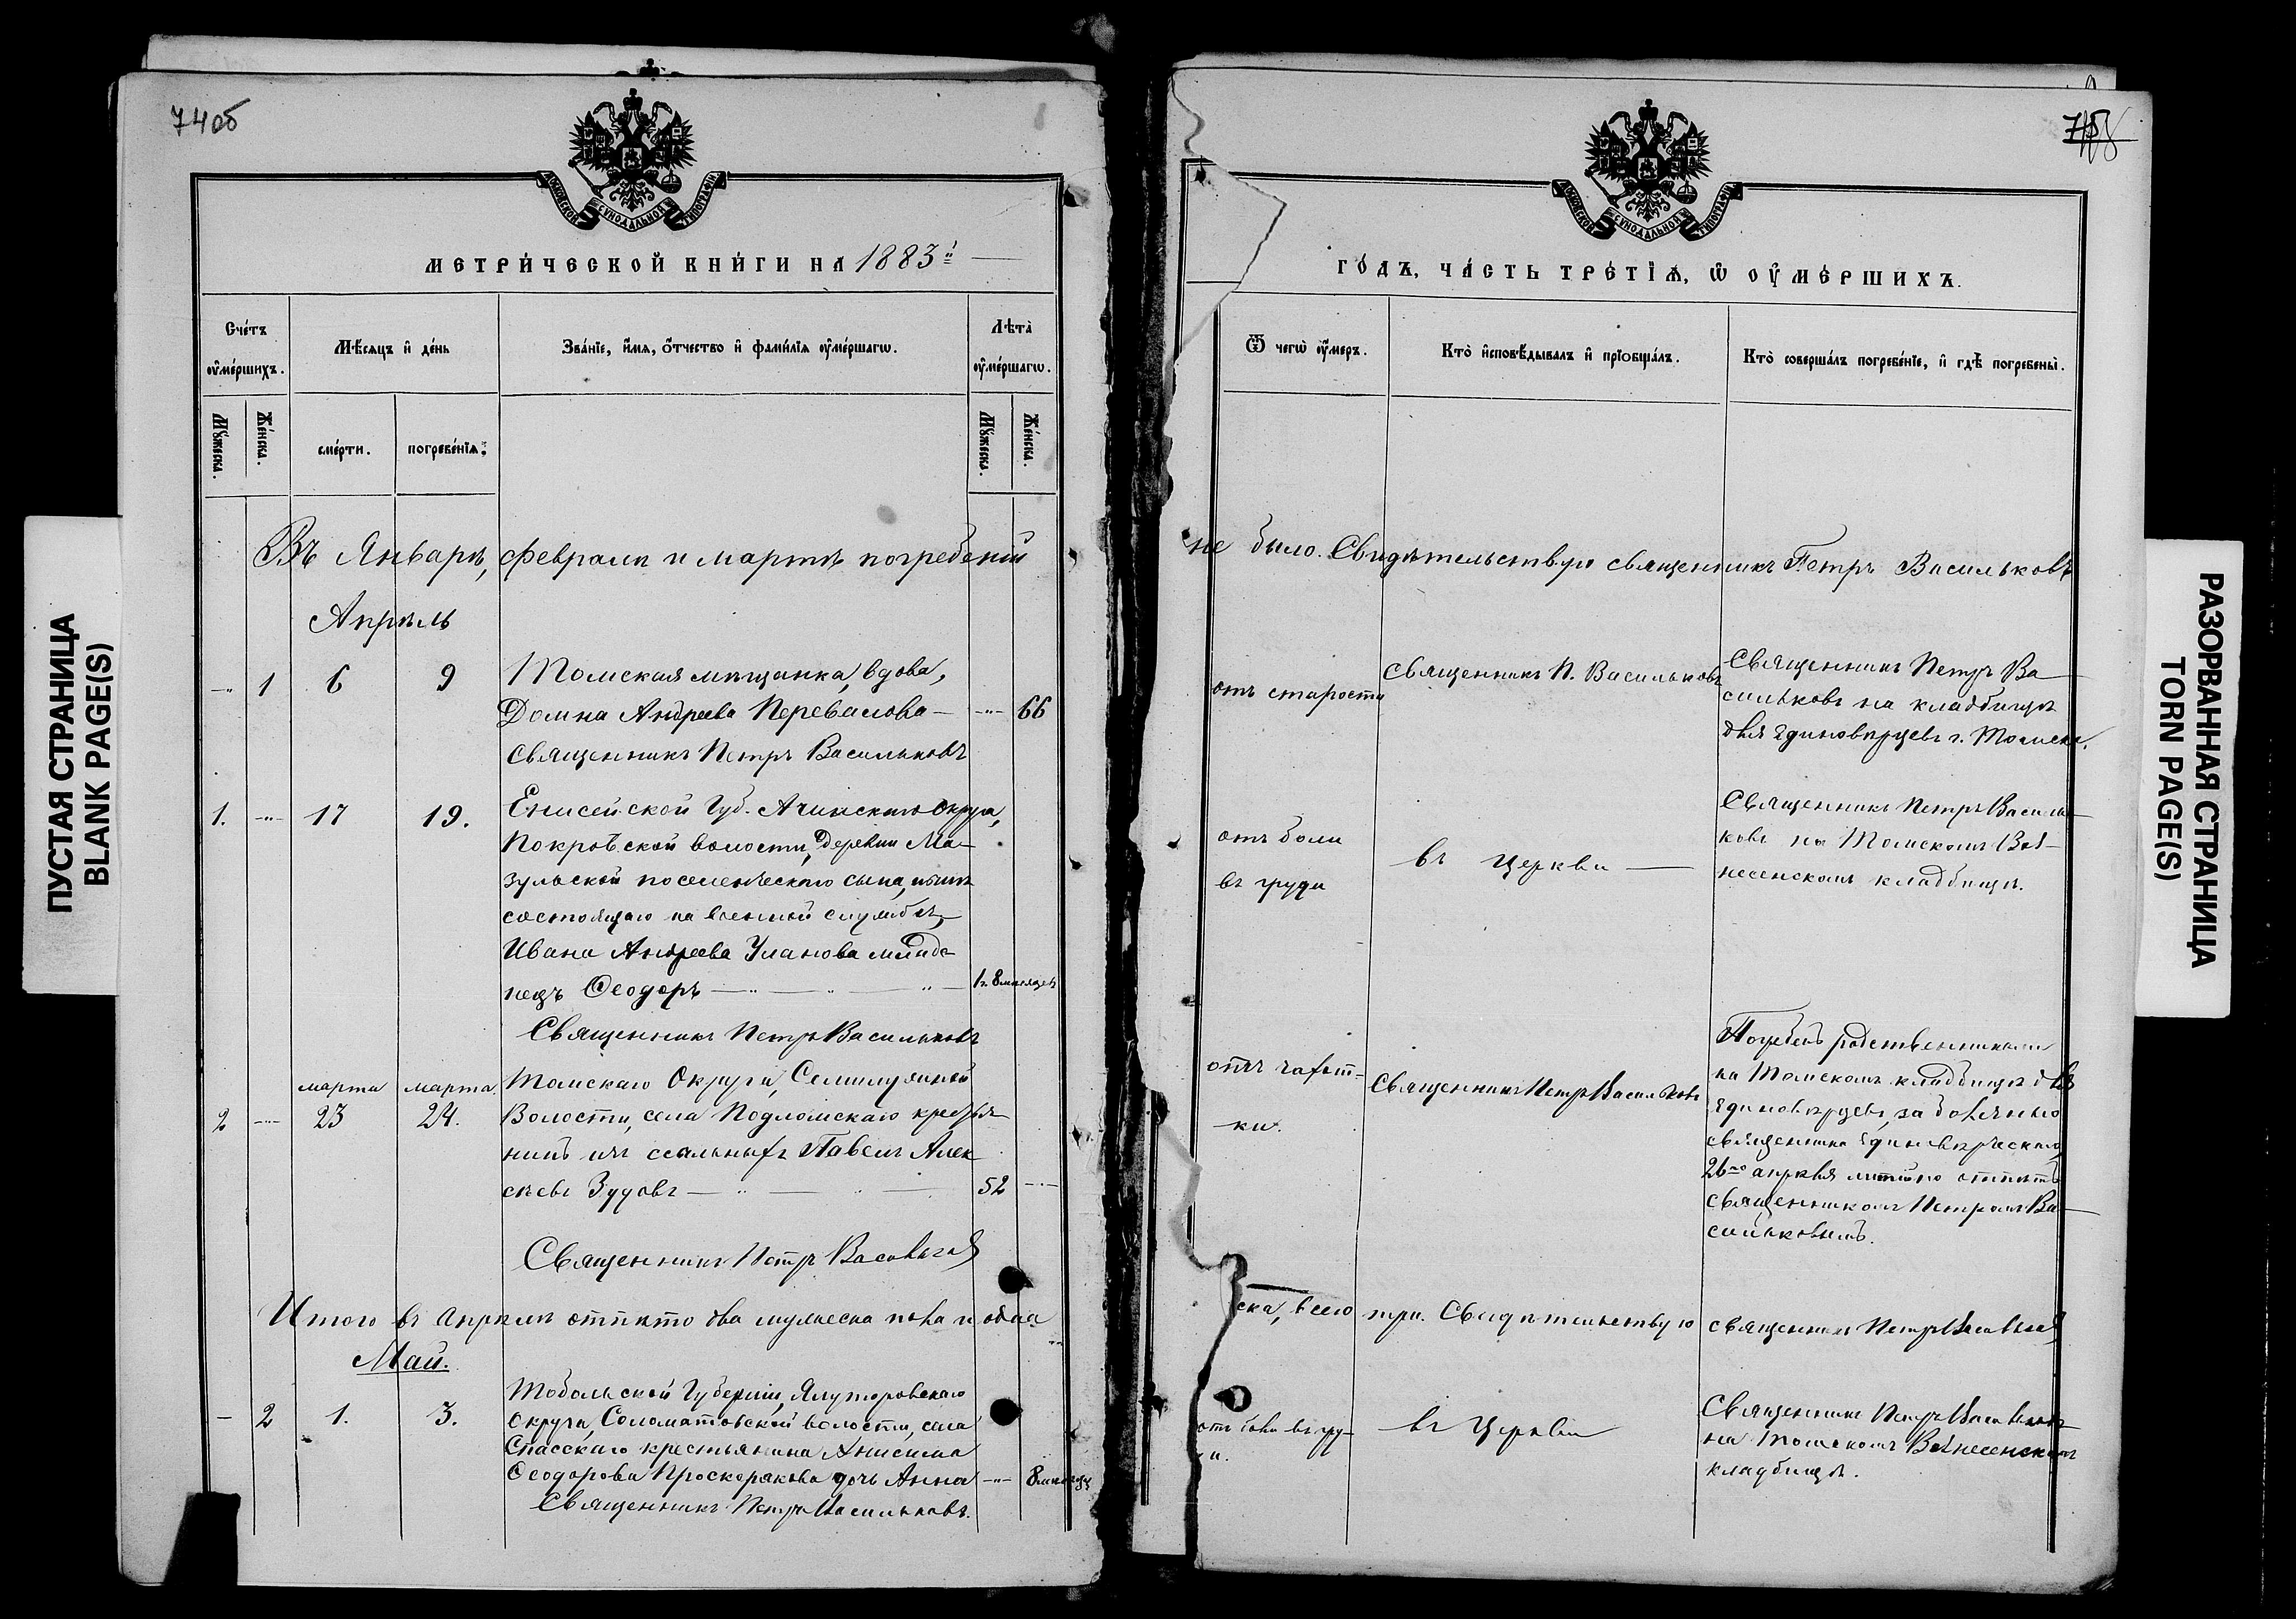 74об
МОСКОВСКОЙ СѴНОДАЛЬНОЙ ТИПОГРАФІИ
МЕТРИ́ЧЕСКОЙ КНИ́ГИ НА 1883й
Сче́тъ ᲂу҆ме́ршихъ.
Мѣ́сяцъ и҆ де́нь
Зва́нїе, и҆́мѧ, ѻ҆́тчество и҆ фами́лїѧ ᲂу҆ме́ршагѡ.
Лѣта̀ ᲂу҆ме́ршагѡ.
Мꙋ́жеска.
Же́нска.
сме́рти.
погребе́нїѧ.
Мꙋ́жеска.
Же́нска.
Въ Январѣ, Февралѣ и мартѣ погребеній
Апрѣль
-"- 1 6 9 Томская мѣщанка, вдова,
Домна Андреева Перевалова — -"- 66
Священникъ Петръ Васильковъ
1. -"- 17 19. Енисейской Губ. Ачинскаго округа,
Покровской волости, деревни Ма-
зульской поселенческаго сына, нынѣ
состоящаго на военной службѣ,
Ивана Андреева Уланова младе-
нецъ Ѳеодоръ — " — " — " — 1г. 8 мѣсяцевъ
Священникъ Петръ Васильковъ
марта марта Томскаго Округа, Семилужной
2 -"- 23 24. Волости, села Подломскаго крестья-
нинъ изъ ссыльныхъ Павелъ Алек-
сѣевъ Зудовъ — " — " — 52 -"-
Священникъ Петръ Васильковъ
Итого въ Апрѣлѣ отпѣто два мужеска пола и одна
Май.
- 2 1. 3. Тобольской Губерніи, Ялуторовскаго
округа, Соломатовской волости, села
Спасскаго крестьянина Анисима
Ѳеодорова Проскорякова дочь Анна -"- 8 мѣсяцъ
Священникъ Петръ Васильковъ.
75
МОСКОВСКОЙ СѴНОДАЛЬНОЙ ТИПОГРАФІИ
ГО́ДЪ, ЧА́СТЬ ТРЕ́ТЇѦ, Ѡ҆ ОУ҆МЕ́РШИХЪ.
Ѿ чегѡ̀ ᲂу҆́меръ.
Кто̀ и҆сповѣ́дывалъ и҆ прїѡбща́лъ.
Кто̀ соверша́лъ погребе́нїе, и҆ гдѣ̀ погребены̀.
не было. Свидѣтельствую священникъ Петръ Васильковъ
отъ старости
Священникъ П. Васильковъ
Священникъ Петръ Ва-
сильковъ на кладбищѣ
для Единовѣрцевъ г. Томска.
отъ боли
въ груди
въ церкви —
Священникъ Петръ Василь-
ковъ на Томскомъ Воз-
несенскомъ кладбищѣ.
отъ чахот-
ки.
Священникъ Петръ Васильковъ
Погребенъ родственниками
на Томскомъ кладбищѣ для
Единовѣрцевъ, за болѣзнью
священника Единовѣрческаго,
26го апрѣля отпѣтъ
священникомъ Петромъ Ва-
сильковымъ.
ска, всего три. Свидѣтельствую священникъ Петръ Васильковъ
отъ боли въ гру-
и.
въ Церкви
Священникъ Петръ Васильковъ
на Томскомъ Вознесенскомъ
кладбищѣ.
ПУСТАЯ СТРАНИЦА
BLANK PAGE(S)
РАЗОРВАННАЯ СТРАНИЦА
TORN PAGE(S)